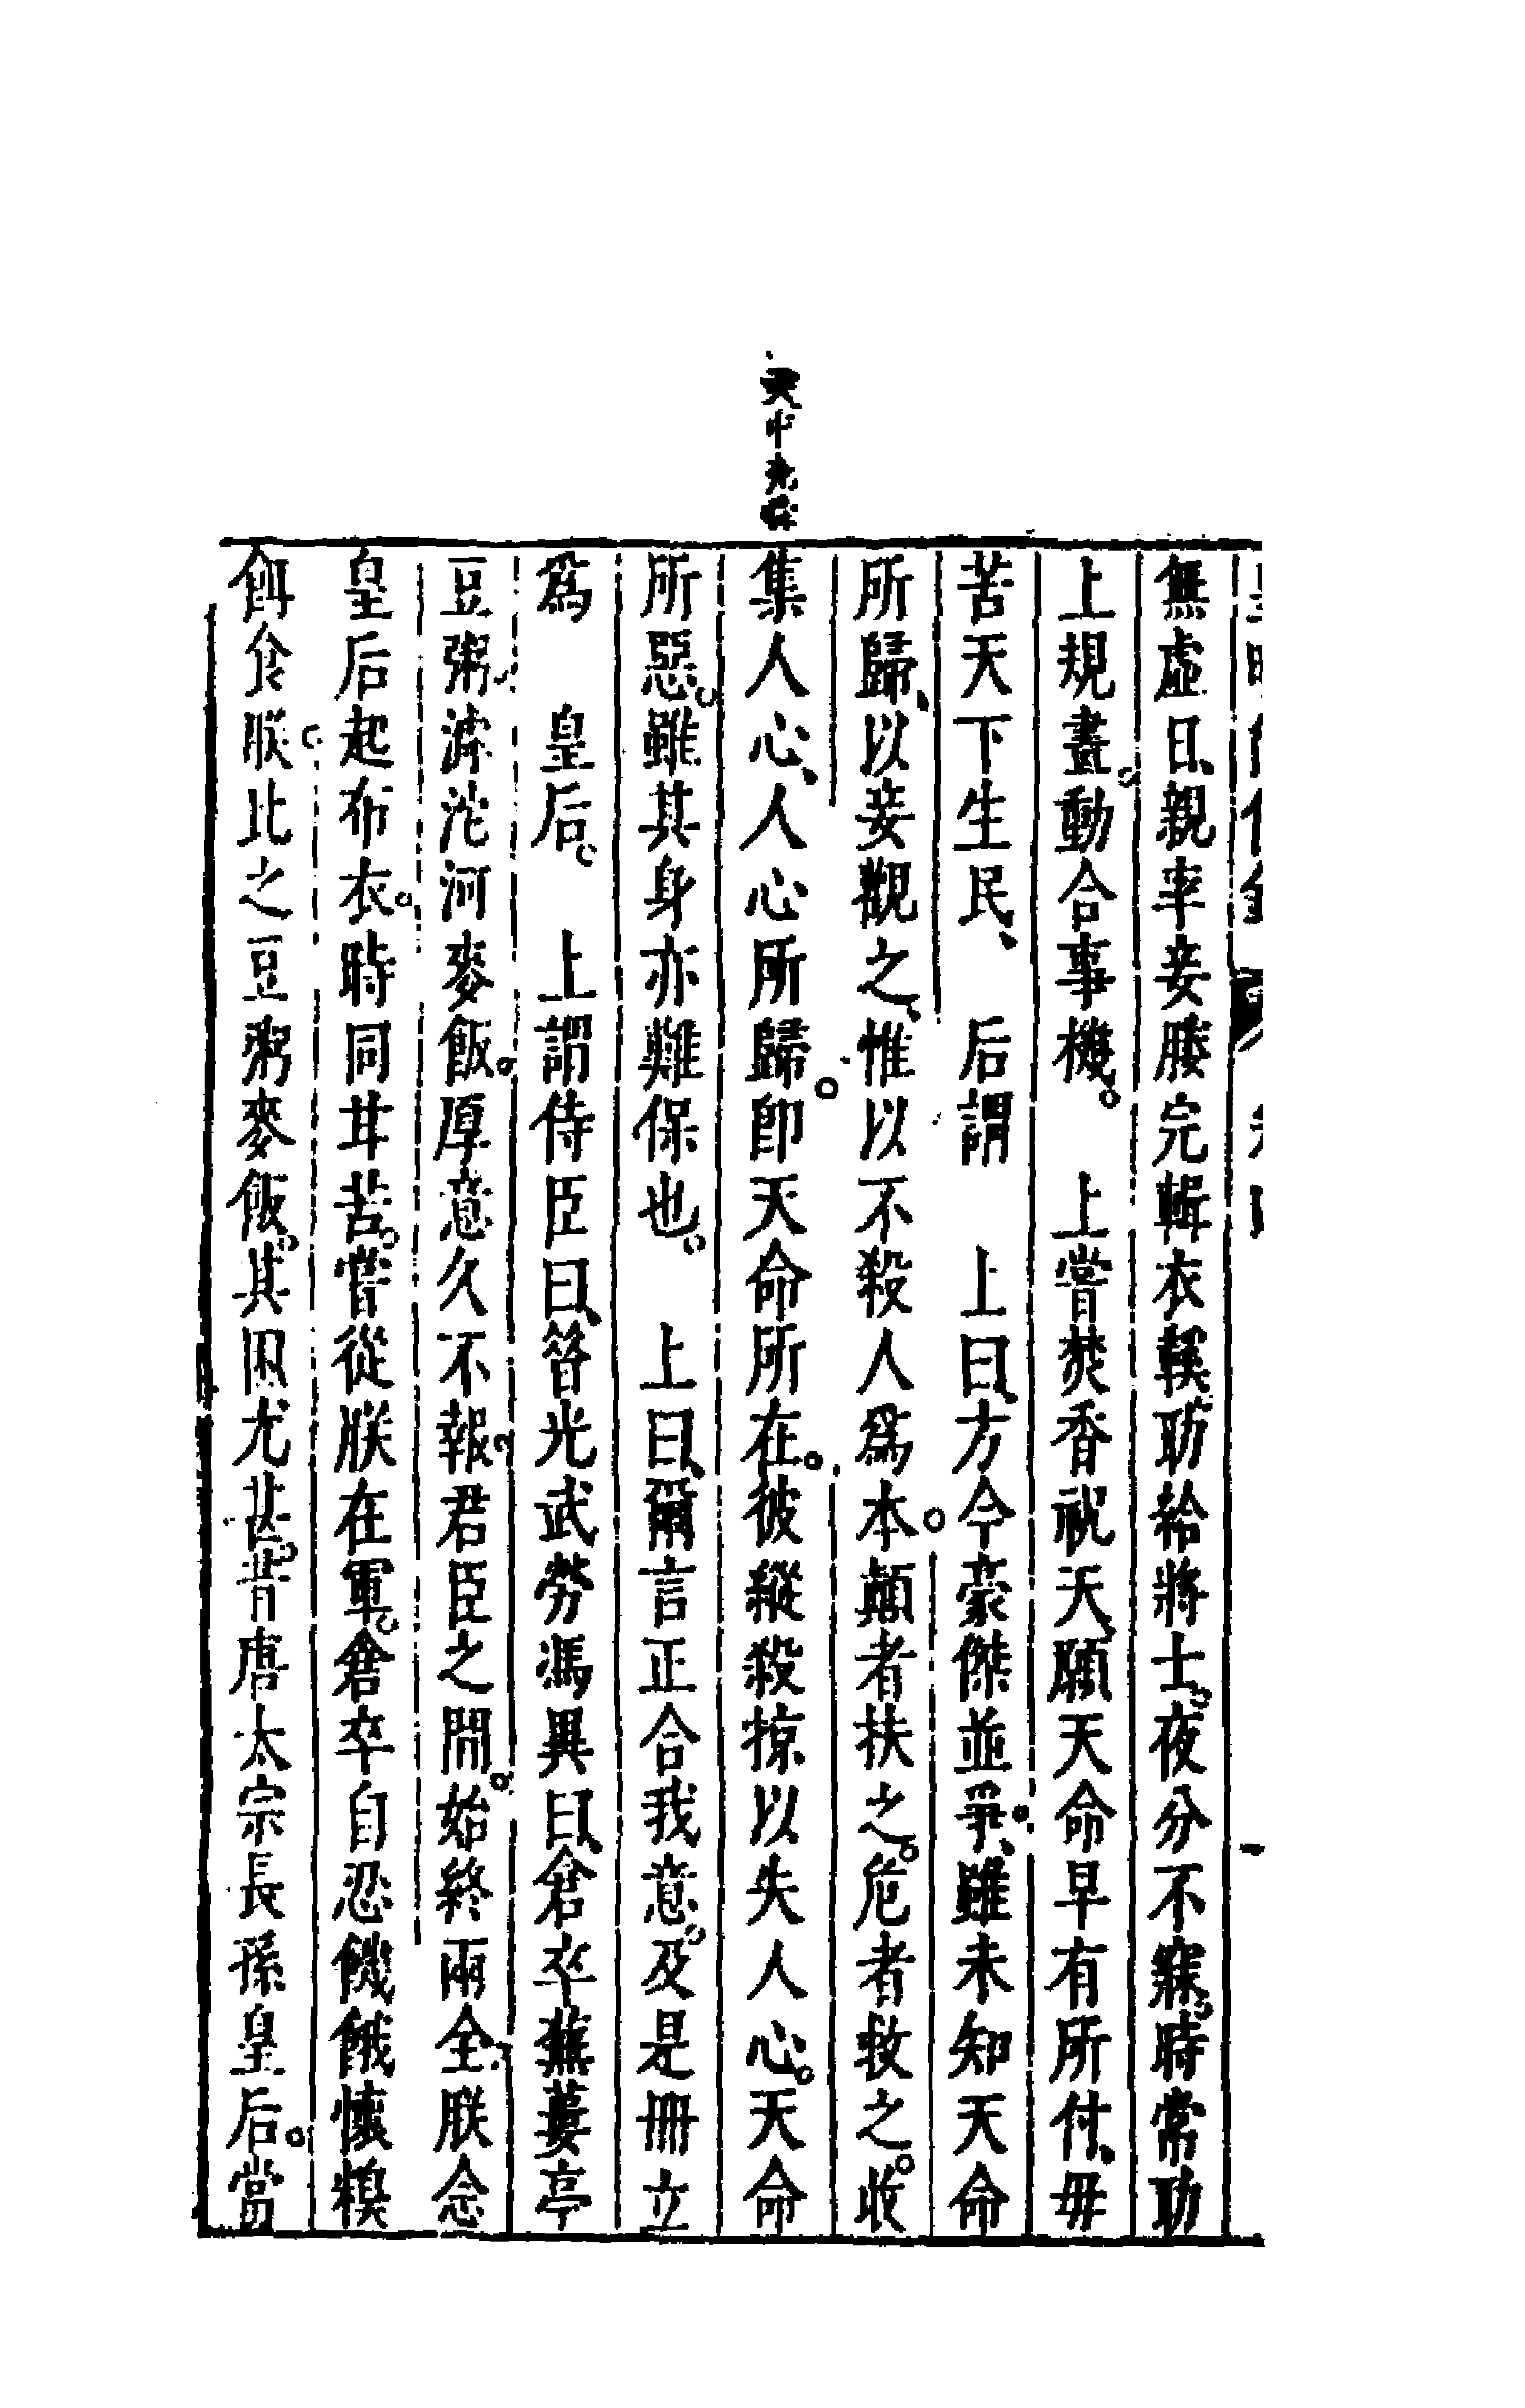 無虛日、親率妾媵完輯衣鞵助給將士。夜分不寐。時常助
上規畫。動合事機。　上嘗焚香祝天、願天命早有所付、毋
苦天下生民、　后謂　上曰、方今豪傑並爭、雖未知天命
所歸、以妾觀之、惟以不殺人爲本。顛者扶之。危者救之。收
集人心、人心所歸。卽天命所在。彼縱殺掠以失人心。天命
所惡。雖其身亦難保也。　上曰、爾言正合我意。及是冊立
爲　皇后。　上謂侍臣曰、昝光武勞馮異曰、倉卒蕪蔞亭
豆粥。滹沱河麥飯。厚意久不報。君臣之間。始終兩全。朕念
皇后起布衣。時同甘苦。嘗從朕在軍。倉卒自忍饑餓懷糗
餌食朕。比之豆粥麥飯。其困尤甚。昔唐太宗長孫皇后。當